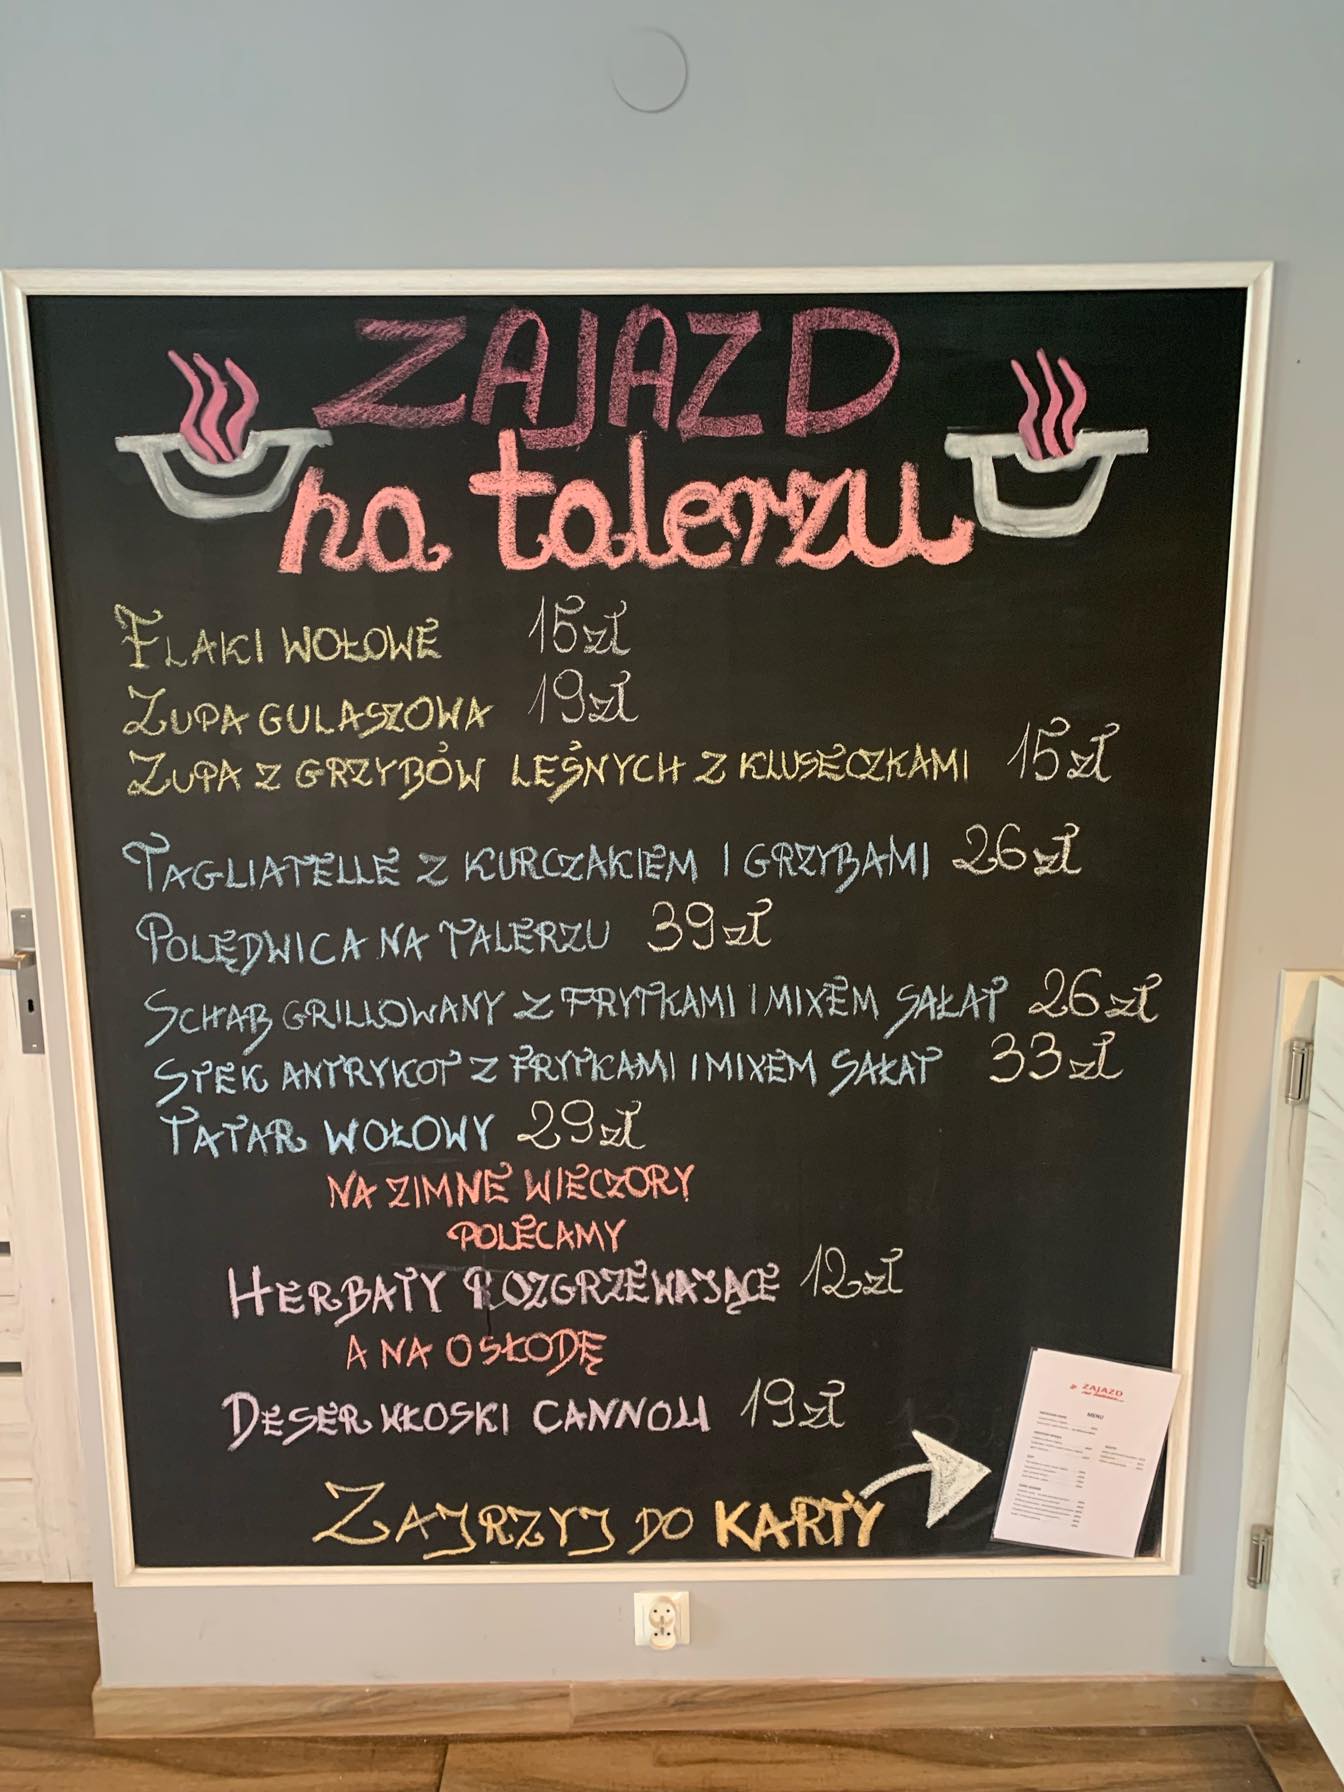 ZAJAZD
na talerzu
FLAKI WOŁOWE 15zł
ZUPA GULASZOWA 19zł
ZUPA Z GRZYBÓW LEŚNYCH Z KLUSECZKAMI 15zł
TAGLIATELLE Z KURCZAKIEM I GRZYBAMI 26zł
POLĘDWICA NA TALERZU 39zł
SCHAB GRILLOWANY Z FRYTKAMI I MIXEM SAŁAT 26zł
STEK ANTRYKOT Z FRYTKAMI I MIXEM SAŁAT 33zł
TATAR WOŁOWY 29zł
NA ZIMNE WIECZORY
POLECAMY
HERBATY ROZGRZEWAJĄCE 12zł
A NA OSŁODĘ
DESER WŁOSKI CANNOLI 19zł
ZAJRZYJ DO KARTY
ZAJAZD
MENU